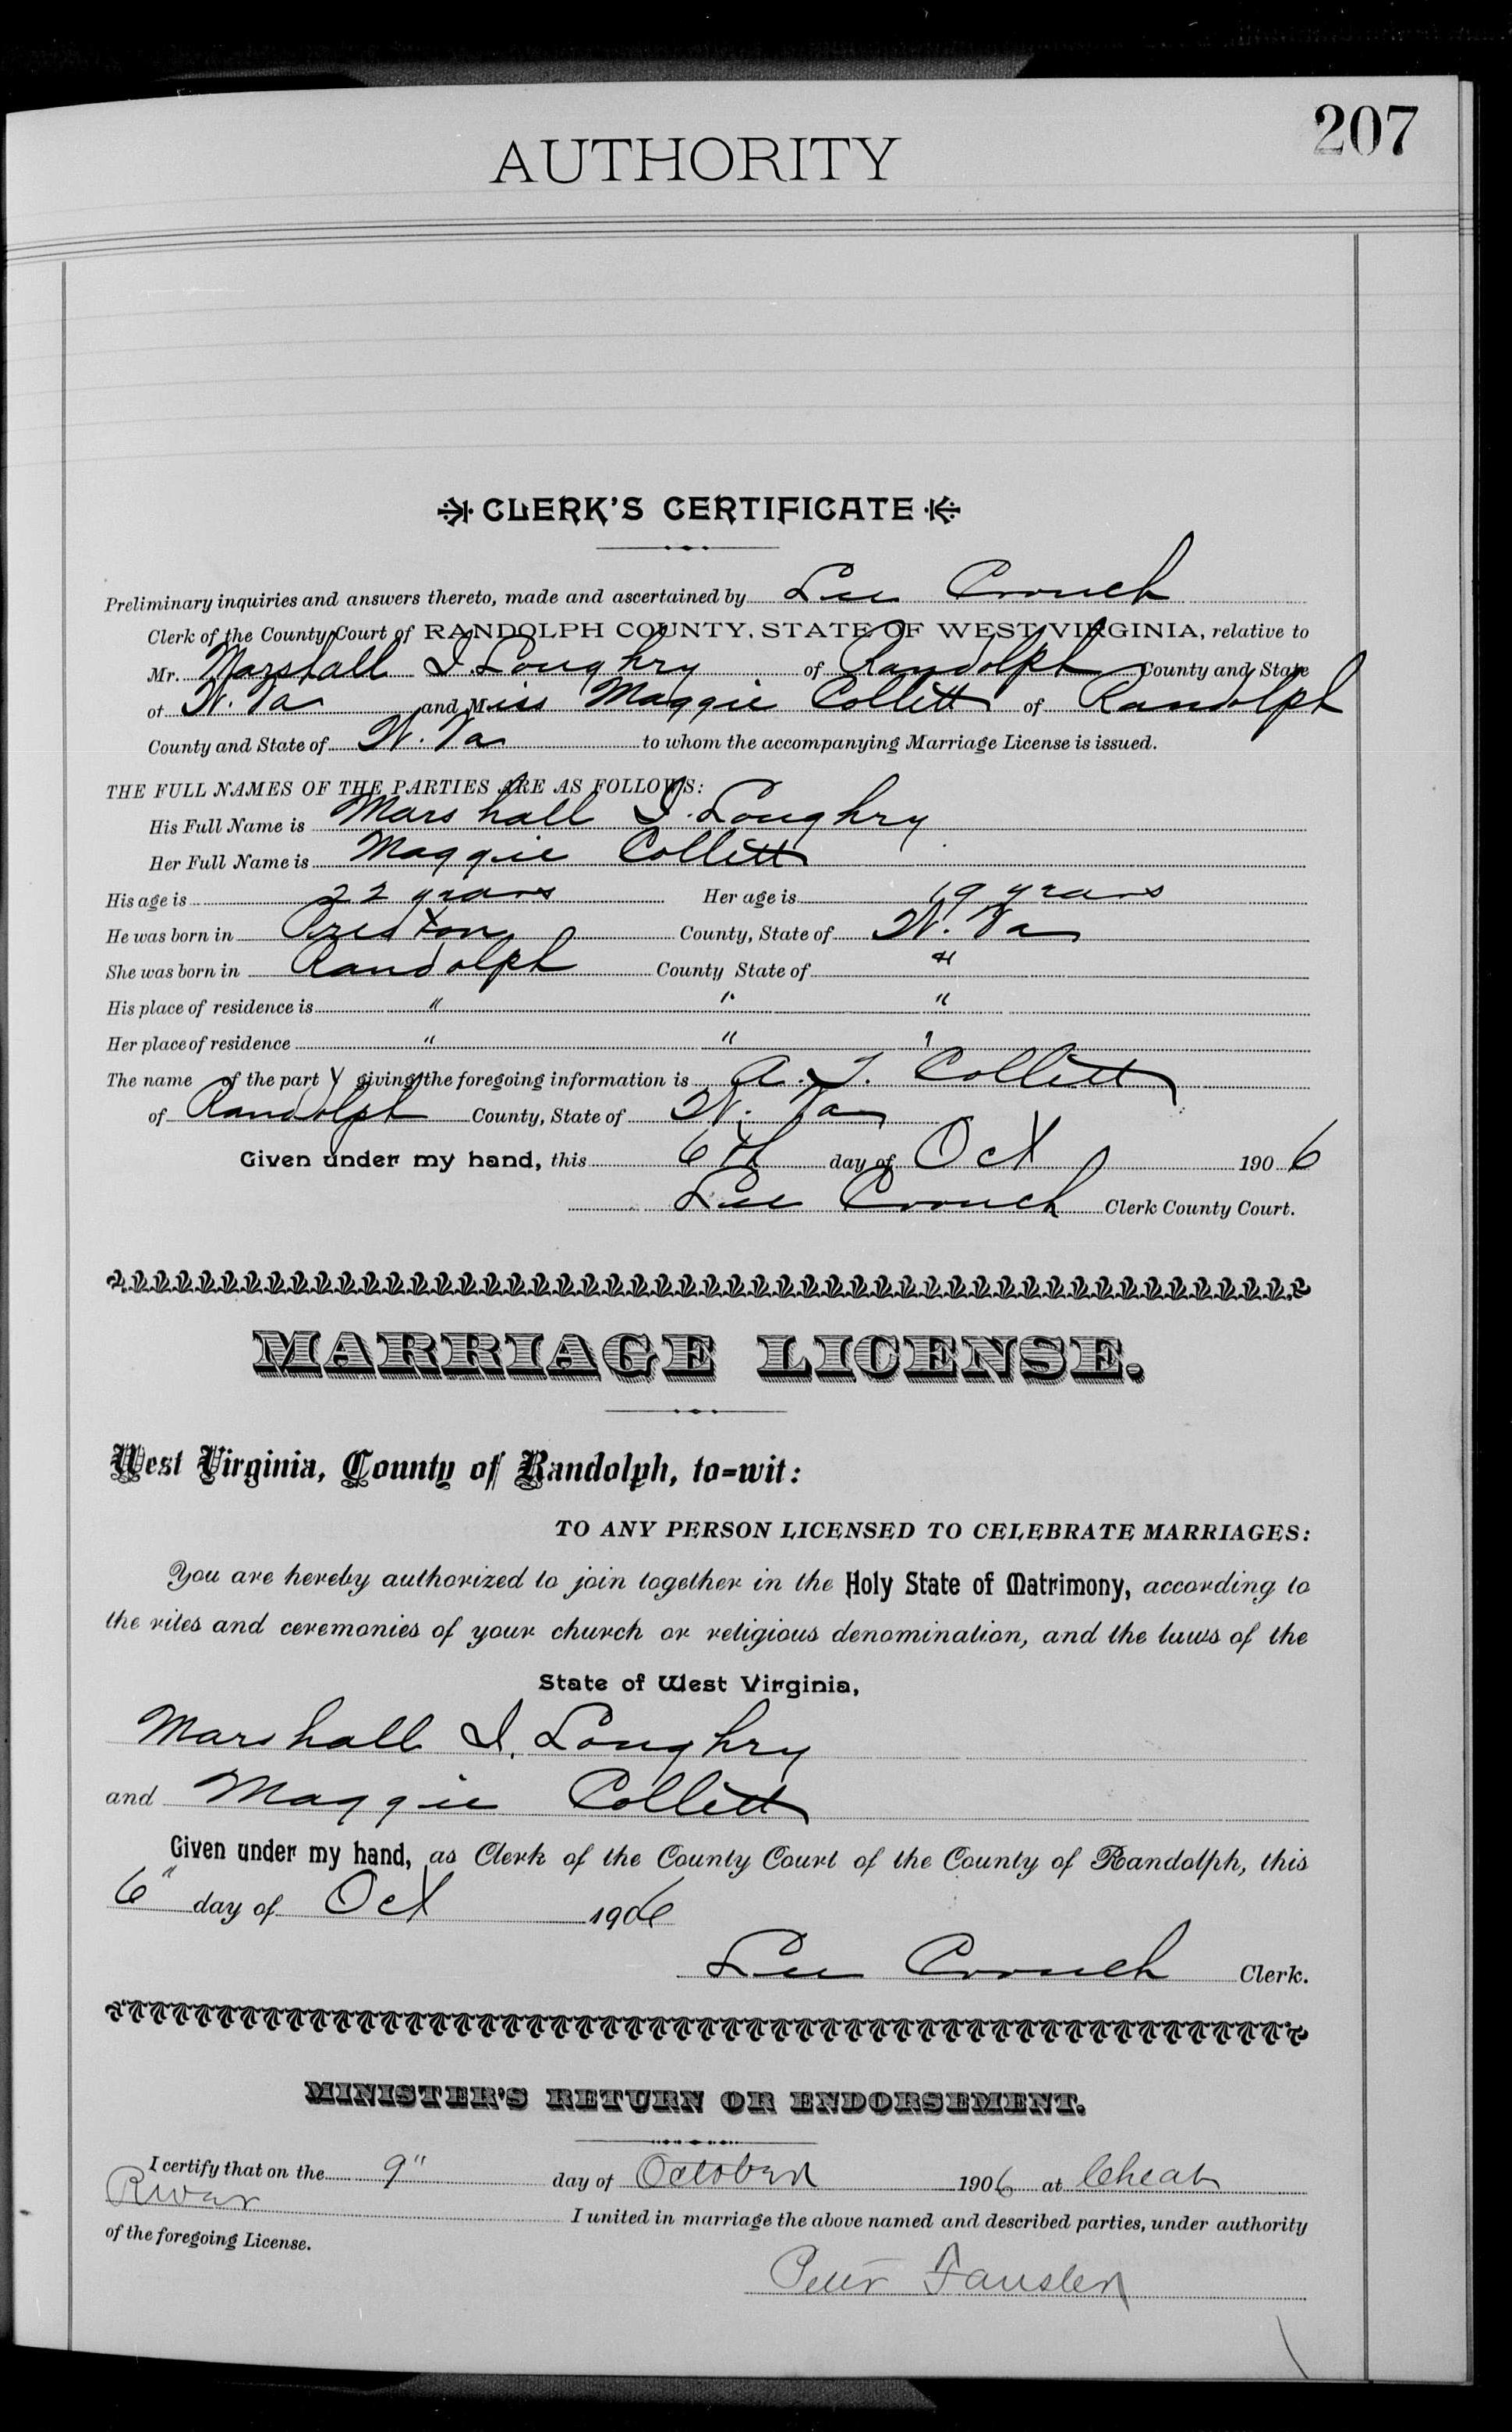 207
AUTHORITY
CLERK'S CERTIFICATE
Preliminary inquiries and answers thereto, made and ascertained by Lee Crouch
Clerk of the County Court of RANDOLPH COUNTY, STATE OF WEST VIRGINIA, relative to
Mr. Marshall I. Loughry of Randolph County and State
of W. Va and Miss Maggie Collett of Randolph
County and State of W. Va to whom the accompanying Marriage License is issued.
THE FULL NAMES OF THE PARTIES ARE AS FOLLOWS:
His Full Name is Marshall I. Loughry
Her Full Name is Maggie Collett
His age is 22 years Her age is 19 years
He was born in Preston County, State of W. Va
She was born in Randolph County State of "
His place of residence is " " "
Her place of residence " " "
The name of the party giving the foregoing information is A. T. Collett
of Randolph County, State of W. Va
Given under my hand, this 6th day of Oct 1906
Lee Crouch Clerk County Court.
MARRIAGE LICENSE.
West Virginia, County of Randolph, to=wit:
TO ANY PERSON LICENSED TO CELEBRATE MARRIAGES:
You are hereby authorized to join together in the Holy State of Matrimony, according to
the rites and ceremonies of your church or religious denomination, and the laws of the
State of West Virginia,
Marshall I. Loughry
and Maggie Collett
Given under my hand, as Clerk of the County Court of the County of Randolph, this
6" day of Oct 1906
Lee Crouch Clerk.
MINISTER'S RETURN OR ENDORSEMENT.
I certify that on the 9" day of October 1906 at Cheat
River I united in marriage the above named and described parties, under authority
of the foregoing License.
Peter Fansler